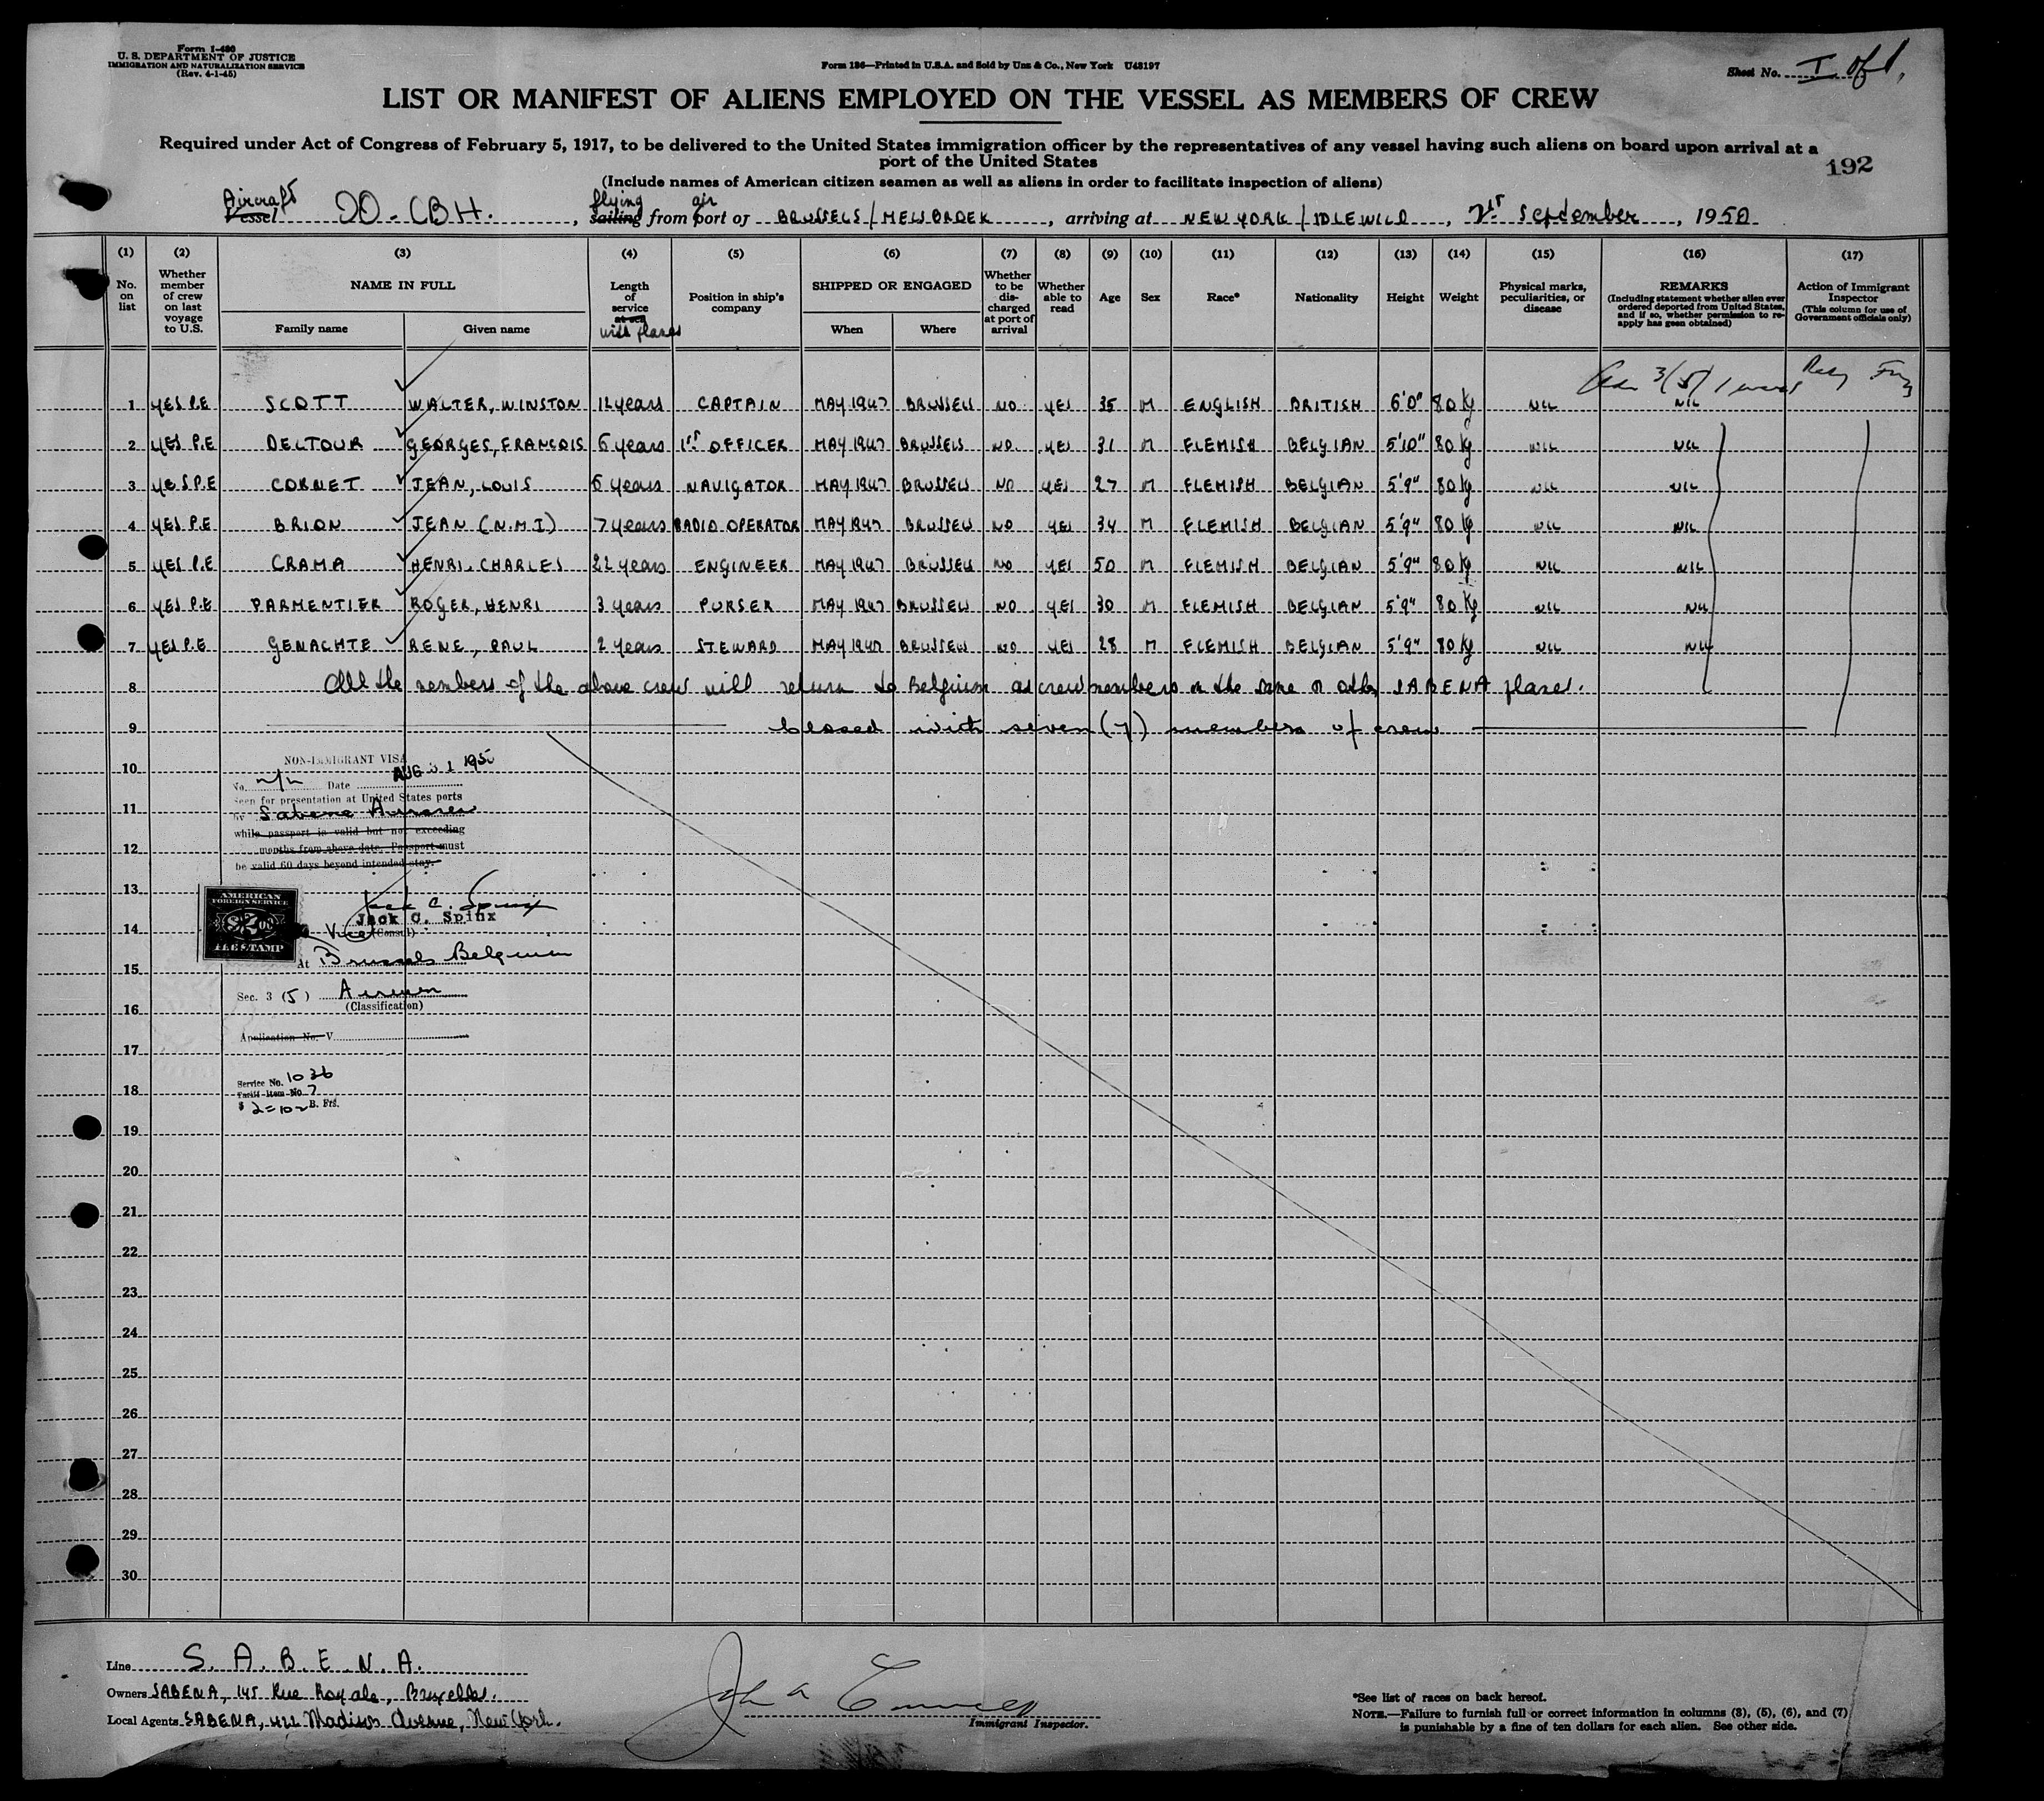 Form I-480
U. S. DEPARTMENT OF JUSTICE
IMMIGRATION AND NATURALIZATION SERVICE
(Rev. 4-1-45)
Form 186—Printed in U.S.A. and Sold by Unz & Co., New York U48197
Sheet No. I of 1.
LIST OR MANIFEST OF ALIENS EMPLOYED ON THE VESSEL AS MEMBERS OF CREW
Required under Act of Congress of February 5, 1917, to be delivered to the United States immigration officer by the representatives of any vessel having such aliens on board upon arrival at a
port of the United States
192
(Include names of American citizen seamen as well as aliens in order to facilitate inspection of aliens)
Aircraft flying air
Vessel OO-CBH., sailing from port of BRUSSELS/MELSBROEK, arriving at NEW YORK/IDLEWILD, September, 1950
(1) (2) (3) (4) (5) (6) (7) (8) (9) (10) (11) (12) (13) (14) (15) (16) (17)
No. on list
Whether member of crew on last voyage to U.S.
NAME IN FULL
Family name
Given name
Length of service at sea with planes
Position in ship's company
SHIPPED OR ENGAGED
When
Where
Whether to be discharged at port of arrival
Whether able to read
Age
Sex
Race*
Nationality
Height
Weight
Physical marks, peculiarities, or disease
REMARKS
(Including statement whether alien ever ordered deported from United States, and if so, whether permission to re-apply has geen obtained)
Action of Immigrant Inspector
(This column for use of Government officials only)
3(5)
1 YES P.E SCOTT WALTER, WINSTON 12 years CAPTAIN MAY 1947 BRUSSELS NO YES 35 M ENGLISH BRITISH 6'0" 80 Kg NIL NIL
2 YES P.E DELTOUR GEORGES, FRANCOIS 6 years 1st OFFICER MAY 1947 BRUSSELS NO. YES 31 M FLEMISH BELGIAN 5'10" 80 Kg NIL NIL
3 YES P.E CORNET JEAN, LOUIS 6 years NAVIGATOR MAY 1947 BRUSSELS NO YES 27 M FLEMISH BELGIAN 5'9" 80 Kg NIL NIL
4 YES P.E BRION JEAN (N.M.I) 7 years RADIO OPERATOR MAY 1947 BRUSSELS NO YES 34 M FLEMISH BELGIAN 5'9" 80 Kg NIL NIL
5 YES P.E CRAMA HENRI, CHARLES 22 years ENGINEER MAY 1947 BRUSSELS NO YES 50 M FLEMISH BELGIAN 5'9" 80 Kg NIL NIL
6 YES P.E PARMENTIER ROGER, HENRI 3 years PURSER MAY 1947 BRUSSELS NO YES 30 M FLEMISH BELGIAN 5'9" 80 Kg NIL NIL
7 YES P.E GENACHTE RENE, PAUL 2 years STEWARD MAY 1947 BRUSSELS NO YES 28 M FLEMISH BELGIAN 5'9" 80 Kg NIL NIL
8 All the members of the above crew will return to Belgium as crew members on the same or other SABENA planes.
9 Closed with seven (7) members of crew
NON-IMMIGRANT VISA
10 No. Date AUG 31 1950
Seen for presentation at United States ports
11 by Sabena
while passport is valid but not exceeding
12 months from above date. Passport must
be valid 60 days beyond intended stay.
13
AMERICAN FOREIGN SERVICE
$2.00
FEE STAMP
Jack C. Spinx
Jack C. Spinx
14 Vice (Consul)
At Brussels Belgium
15
Sec. 3 (5) Airmen
16 (Classification)
Application No. V
17
Service No. 1036
18 Tariff Item No. 7
B. Frs.
19
20
21
22
23
24
25
26
27
28
29
30
Line S. A. B. E. N. A.
Owners SABENA, 145 Rue Royale, Bruxelles.
Local Agents SABENA, 422 Madison Avenue, New York.
Immigrant Inspector.
*See list of races on back hereof.
NOTE.—Failure to furnish full or correct information in columns (3), (5), (6), and (7)
is punishable by a fine of ten dollars for each alien. See other side.